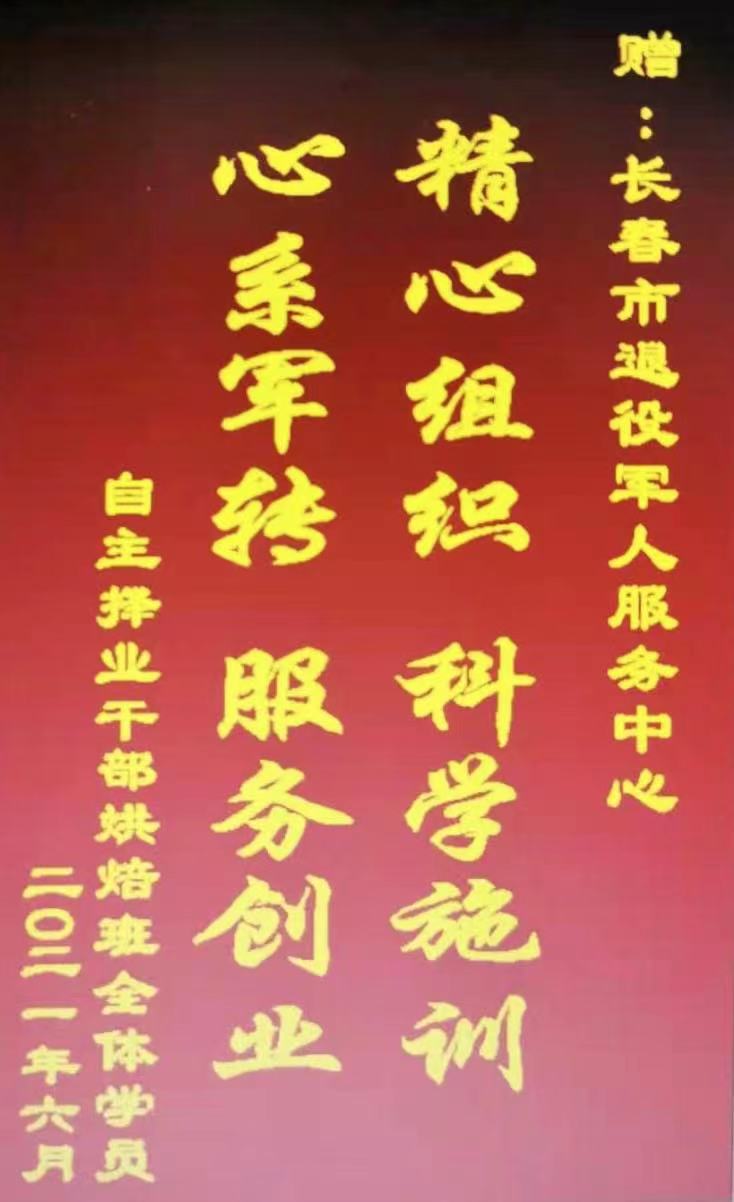 赠：长春市退役军人服务中心
精心组织 科学施训
心系军转 服务创业
自主择业干部烘焙班全体学员
二〇二一年六月